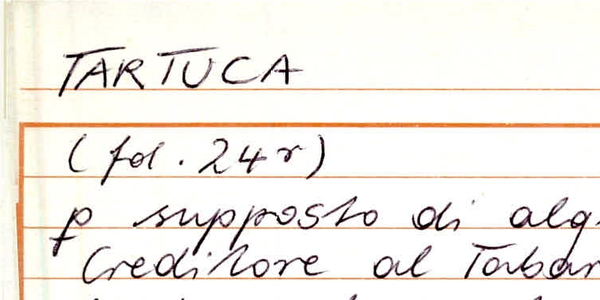 TARTUCA
(fol. 24r)
p supposto di
Creditore al